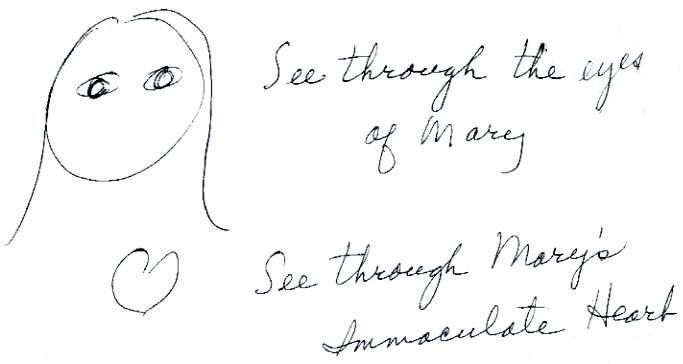 See through the eyes
of Mary
See through Mary's
Immaculate Heart